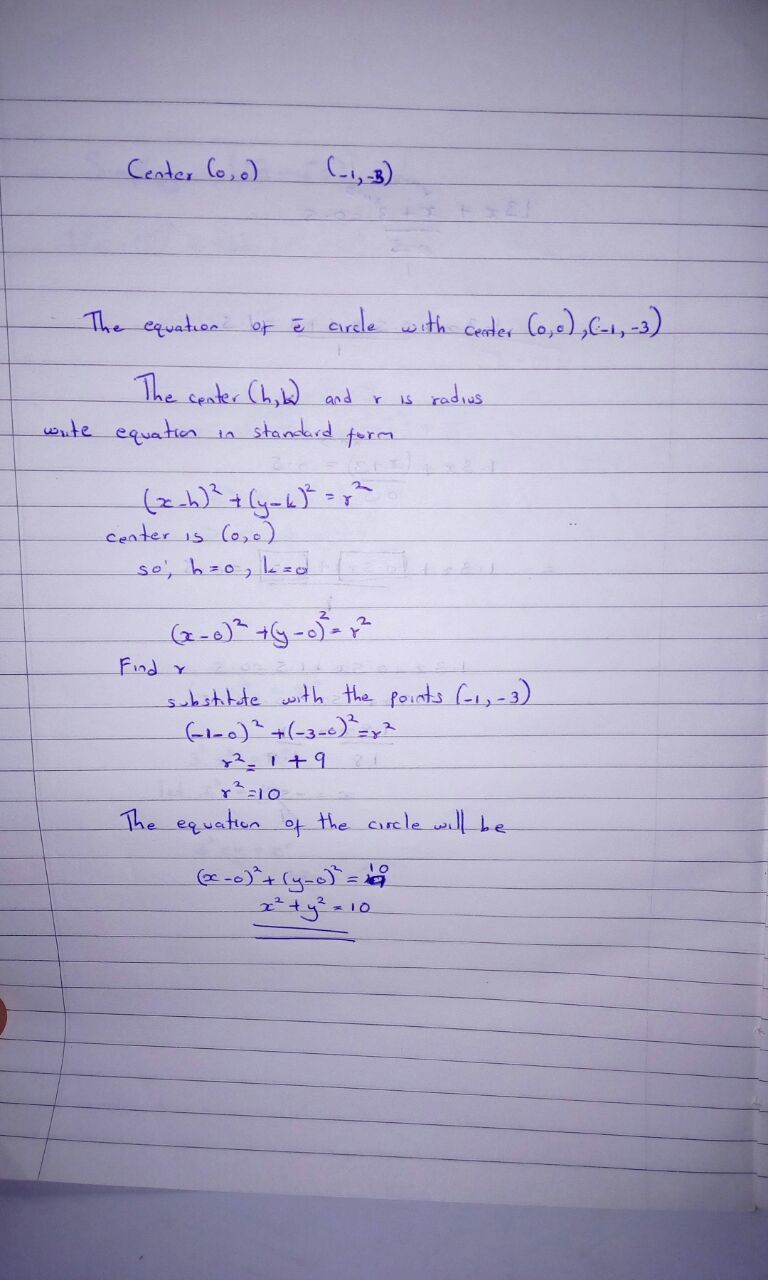 Center (0,0) (-1,-3)
The equation of c̄ circle with center (0,0),(-1,-3)
The center (h,k) and r is radius
write equation in standard form
(x-h)² + (y-k)² = r²
center is (0,0)
so, h=0, k=0
(x-0)² + (y-0)² = r²
Find r
substitute with the points (-1,-3)
(-1-0)² + (-3-0)² = r²
r² = 1 + 9
r² = 10
The equation of the circle will be
(x-0)² + (y-0)² = 10
x² + y² = 10